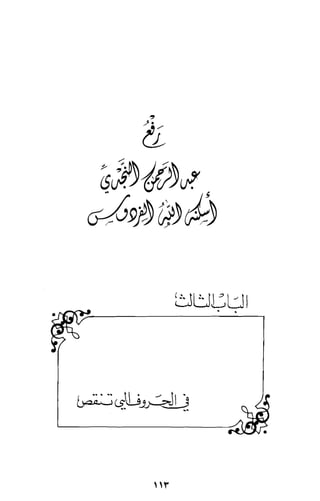 رَفْعُ
عبد الرحمن النجدي
أسكنه الله الفردوس
البَابُ الثالث
في الحروف التي تنقص
١١٣